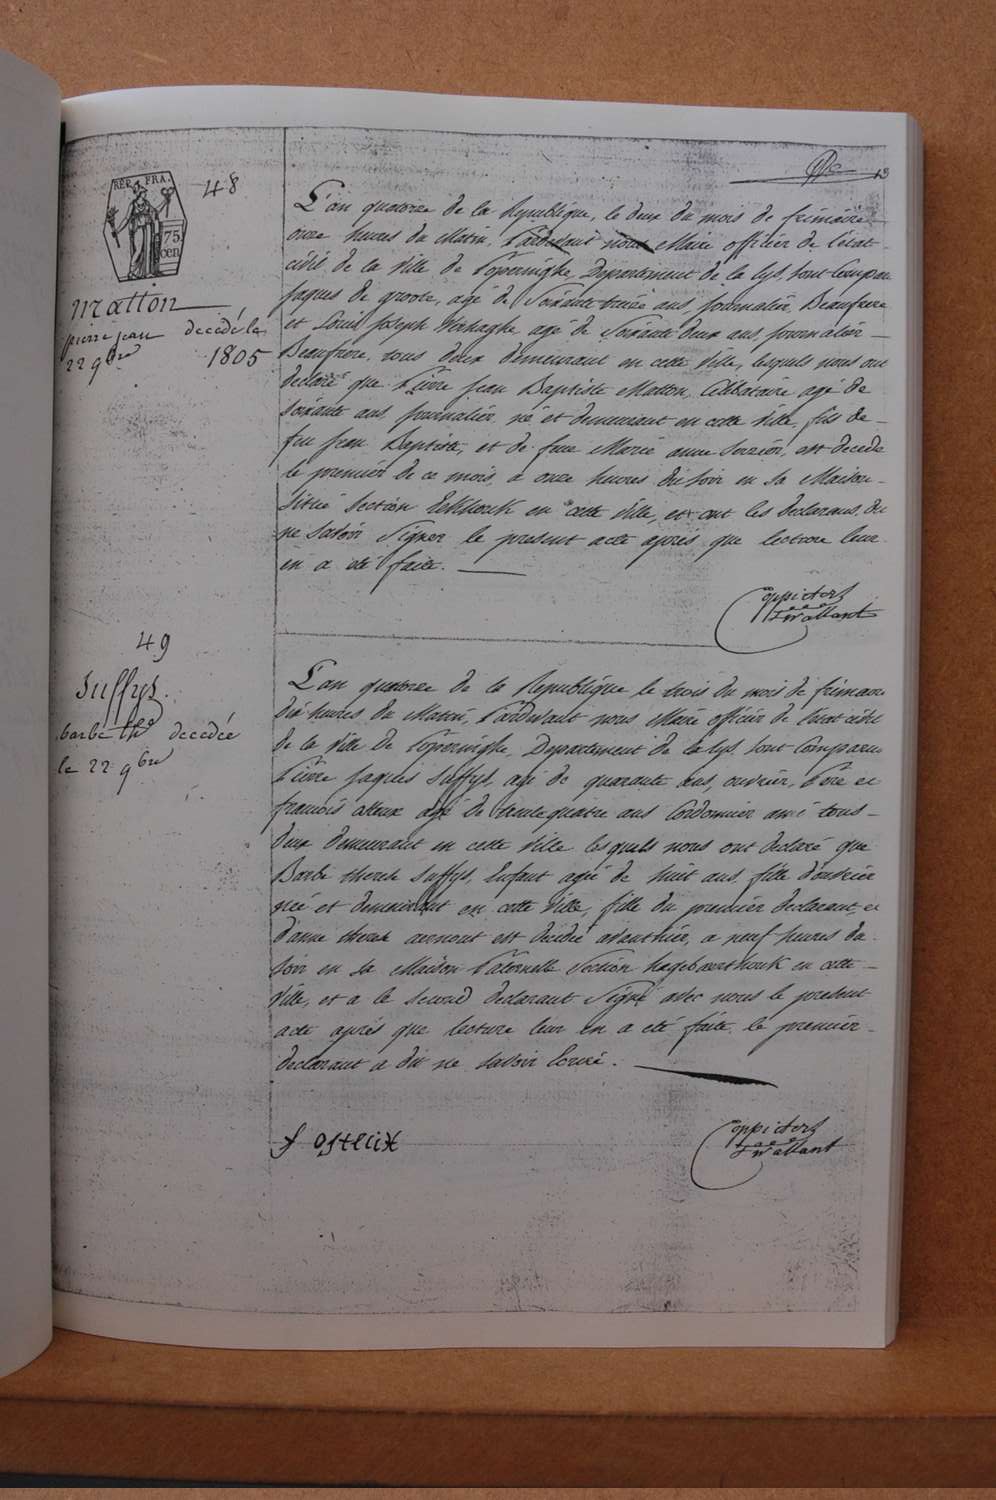 13
RÉP. FRA.
75
cen.
48
Matton
pierre jean decedé le
22 9bre 1805
L'an quatorze de la Republique, le deux du mois de frimaire
onze heures du Matin, Pardevant nous Maire officier de l'etat
civil de la Ville de Poperinghe, Departement de la Lys, sont Comparu
Jaques de groote, agé de Soixante treize ans, journalier, Beaufrere
et Louis Joseph Verhaghe agé de Soixante deux ans, journalier
Beaufrere, tous deux demeurant en cette Ville, lesquels nous ont
declaré que Pierre Jean Baptiste Matton, Celibataire agé de
soixante ans journalier, né et demeurant en cette Ville, fils de
feu Jean Baptiste, et de feue Marie anne est decedé
le premier de ce mois, a onze heures du soir en sa Maison
situé Section Ekhouk en cette Ville, et ont les declarans, du
ne savoir Signer le present acte après que lecture leur
en a eté faite.
Coppietors
twallant
49
Suffys
barbe the decedée
le 22 9bre
L'an quatorze de la Republique le trois du mois de frimaire
dix heures du Matin, Pardevant nous Maire officier de l'etat civil
de la Ville de Poperinghe, Departement de la Lys, sont Comparu
Pierre Jaques Suffys, agé de quarante ans, ouvrier, Pere et
francois agé de trente quatre ans Cordonnier ami tous
deux demeurant en cette Ville lesquels nous ont declaré que
Barbe therese Suffys, Enfant agé de huit ans, fille d'ouvrier
née et demeurant en cette Ville, fille du premier declarant, et
d'anne therese aernout est decedé avanthier, a neuf heures du
soir en sa Maison Paternelle Section hagebaerthouk en cette
Ville, et a le second declarant Signé avec nous le present
acte après que lecture leur en a eté faite, le premier
declarant a dit ne savoir Ecrire.
Coppietors
twallant